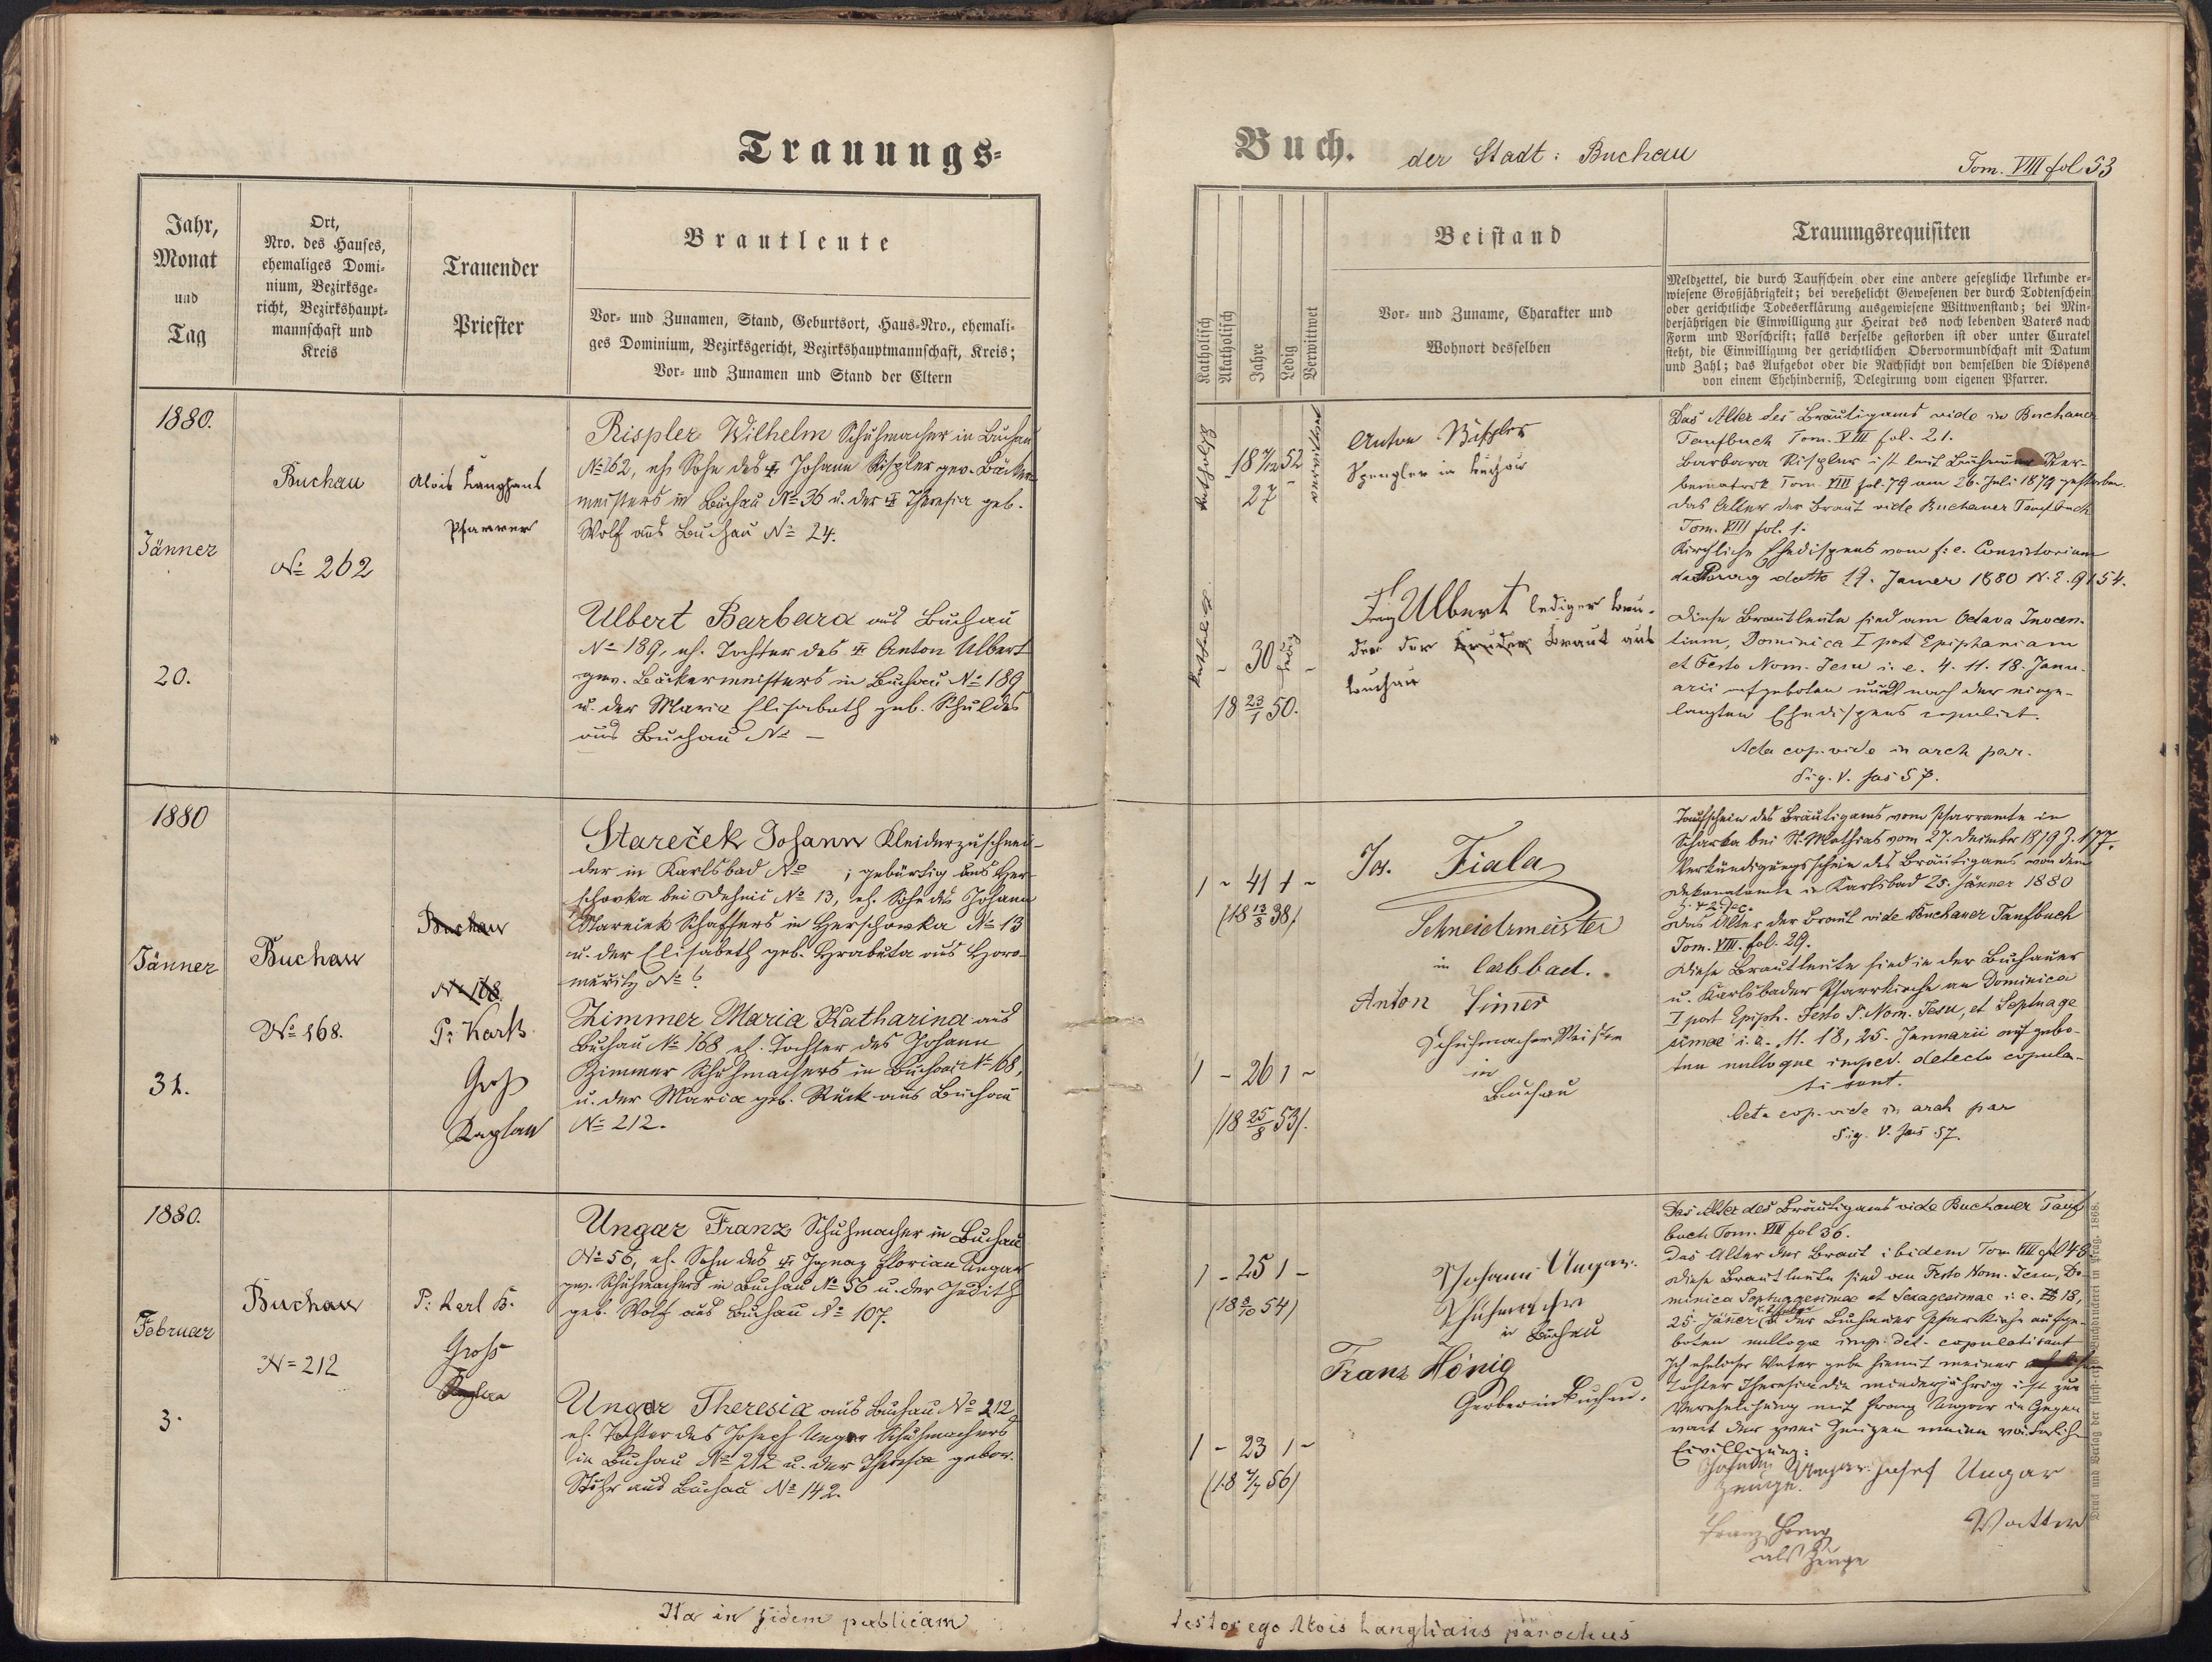 Trauungs-
Jahr,
Monat
und
Tag
Ort,
Nro. des Hauses,
ehemaliges Domi-
nium, Bezirksge-
richt, Bezirkshaupt-
mannschaft und
Kreis
Trauender
Priester
Brautleute
Vor- und Zunamen, Stand, Geburtsort, Haus-Nro., ehemali-
ges Dominium, Bezirksgericht, Bezirkshauptmannschaft, Kreis;
Vor- und Zunamen und Stand der Eltern
1880.
Jänner
20.
Buchau
No 262
Alois Langhans
Pfarrer
Rispler Wilhelm Schuhmacher in Buchau
No 262, eh. Sohn des Johann Rispler gew. Bäcker-
meisters in Buchau No 36 u. der Theresia geb.
Wolf aus Buchau No 24.
Ulbert Barbara aus Buchau
No 189, eh. Tochter des Anton Ulbert
gew. Bäckermeisters in Buchau No 189
u. der Maria Elisabeth geb. Schuldes
aus Buchau No –
1880
Jänner
31.
Buchau
No 168.
Buchau
No 168
P: Karl B.
Groß
Kaplan
Stareček Johann Kleiderzuschnei-
der in Karlsbad No ; gebürtig aus Her-
schovka bei No 13, eh. Sohn des Johann
Stareček Schaffers in Herschowka No 13
u. der Elisabeth geb. Hrabuta aus Horo-
No 6
Zimmer Maria Katharina aus
Buchau No 168 eh. Tochter des Johann
Zimmer Schuhmachers in Buchau No 168,
u. der Maria geb. Rück aus Buchau
No 212.
1880.
Februar
3.
Buchau
N= 212
P: Karl B.
Groß
Kaplan
Ungar Franz Schuhmacher in Buchau
No 56, eh. Sohn des Ignaz Florian Ungar
gew. Schuhmachers in Buchau No 56 u. der Judith
geb. Wolf aus Buchau No 107.
Ungar Theresia aus Buchau No 212
eh. Tochter des Josef Ungar Schuhmachers
in Buchau No 212 u. der Theresia gebor.
aus Buchau No 142.
Ita in fidem publicam
Buch. der Stadt: Buchau
Tom. VIII fol 53
Katholisch
Akatholisch
Jahre
Ledig
Verwittwet
Beistand
Vor- und Zuname, Charakter und
Wohnort desselben
Trauungsrequisiten
Meldzettel, die durch Taufschein oder eine andere gesetzliche Urkunde er-
wiesene Großjährigkeit; bei verehelicht Gewesenen der durch Todtenschein
oder gerichtliche Todeserklärung ausgewiesene Wittwenstand; bei Min-
derjährigen die Einwilligung zur Heirat des noch lebenden Vaters nach
Form und Vorschrift; falls derselbe gestorben ist oder unter Curatel
steht, die Einwilligung der gerichtlichen Obervormundschaft mit Datum
und Zahl; das Aufgebot oder die Nachsicht von demselben die Dispens
von einem Ehehinderniß, Delegirung vom eigenen Pfarrer.
katholisch
verwitwet
27
Anton Rispler
Spengler in Buchau
katholisch
- 30 ledig -
18 23/1 50.
Ulbert lediger Bru-
der der Bruder Braut aus
Buchau
Das Alter des Bräutigams vide in Buchauer
Taufbuch Tom. VIII fol. 21.
Barbara Rispler ist laut Buchauer Ster-
bematrik Tom. VIII fol. 79 am 26. Juli 1879 gestorben.
Das Alter der Braut vide Buchauer Taufbuch
Tom. VIII fol. 1.
Kirchliche Ehedispens vom f: e. Consistorium
Prag datto 17. Janner 1880 N. E. 9154.
Diese Brautleute sind am Octava Inocen-
tium, Dominica I post Epiphaniam
et Festo Nom. Jesu i. e. 4. 11. 18. Janu-
arii aufgeboten und nach der einge-
langten Ehedispens copulirt.
Acta cop. vide in arch par.
Sig. V. fas 57.
1 - 41 1 -
(18 13/8 38)
Jos. Fiala
Schneidrmeister
in
Anton Zimer
Schuhmacher Meister
in
Buchau
1 - 26 1 -
(18 25/8 53).
Taufschein des Bräutigams vom Pfarramte in
Scharka bei St. Mathias vom 27. Dezember 1879 Z. 177.
Verkündigungsschein des Bräutigams von dem
Dekanatamte in Karlsbad 25. Jänner 1880
Das Alter der Braut vide Buchauer Taufbuch
Tom. VIII. fol. 29.
Diese Brautleute sind in der Buchauer
u. Karlsbader Pfarrkirche an Dominica
I post Epiph. Festo S. Nom. Jesu, et Septuage
simae i. e. 11. 18, 25. Januarii aufgebo-
ten nulloque imped. detecto copula-
ti sunt.
Acta cop. vide in arch par
Sig. V. fas 57.
1 - 25 1 -
(18 54)
Johann Ungar.
in Buchau
Franz Hönig
Gerber in Buchau.
1 - 23 1 -
(18 56)
Das Alter des Bräutigams vide Buchauer Tauf
buch Tom. VIII fol 36.
Das Alter der Braut ibidem Tom VIII fol 48.
Diese Brautleute sind am Festo Nom. Jesu, Do-
minica Septuagesimae et Sexagesimae i. e. 18,
25. Jäner in der Buchauer Pfarrkirche aufge-
boten nulloqe imp. det. copulati sunt
Ich ehelicher Vater gebe hiemit meiner
Tochter Theresia die minderjährig ist zur
Verehelichung mit Franz Ungar in Gegen
wart der zwei Zeugen meine väterliche
Eivilligung:
Johann Ungar. Josef Ungar
Zeuge.
Vatter
Franz
als Zeuge
Druck und Verlag der fürst-erzb. Buchdruckerei in Prag. 1868.
testor ego Alois Langhans parochus